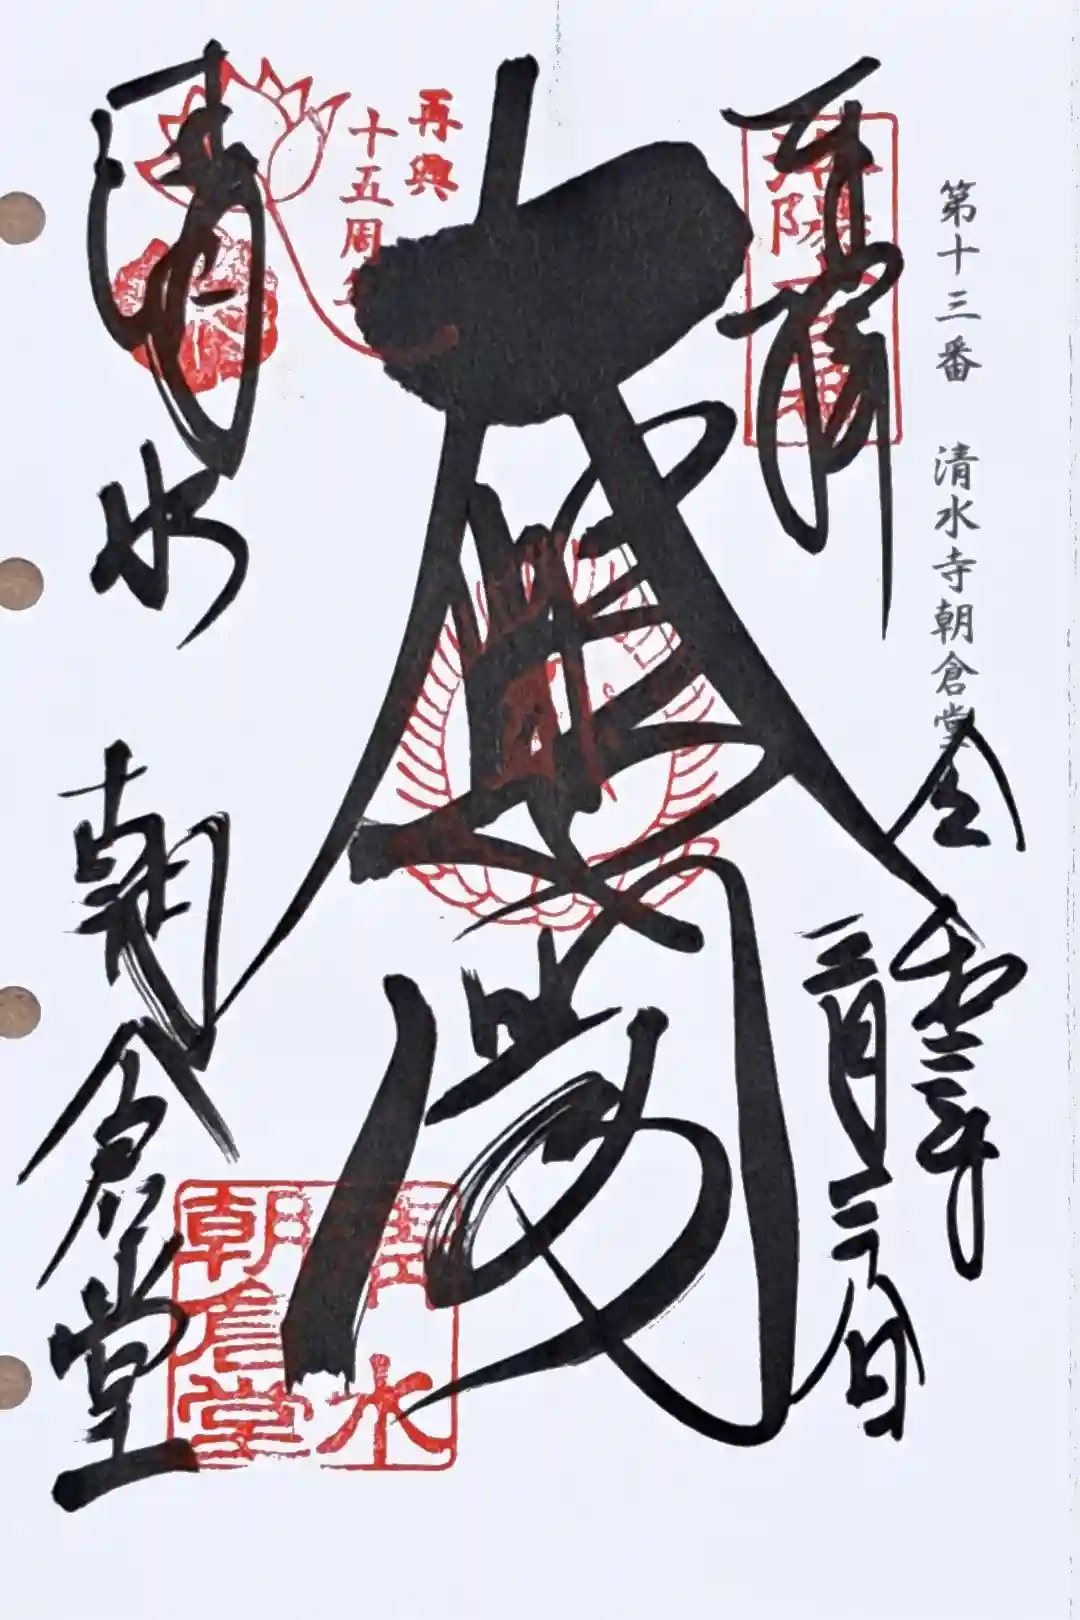 第十三番　清水寺朝倉堂
奉拝
洛陽
令和二年
三月二八日
大悲閣
再興
十五周年
清水
朝倉堂
清水
朝倉堂